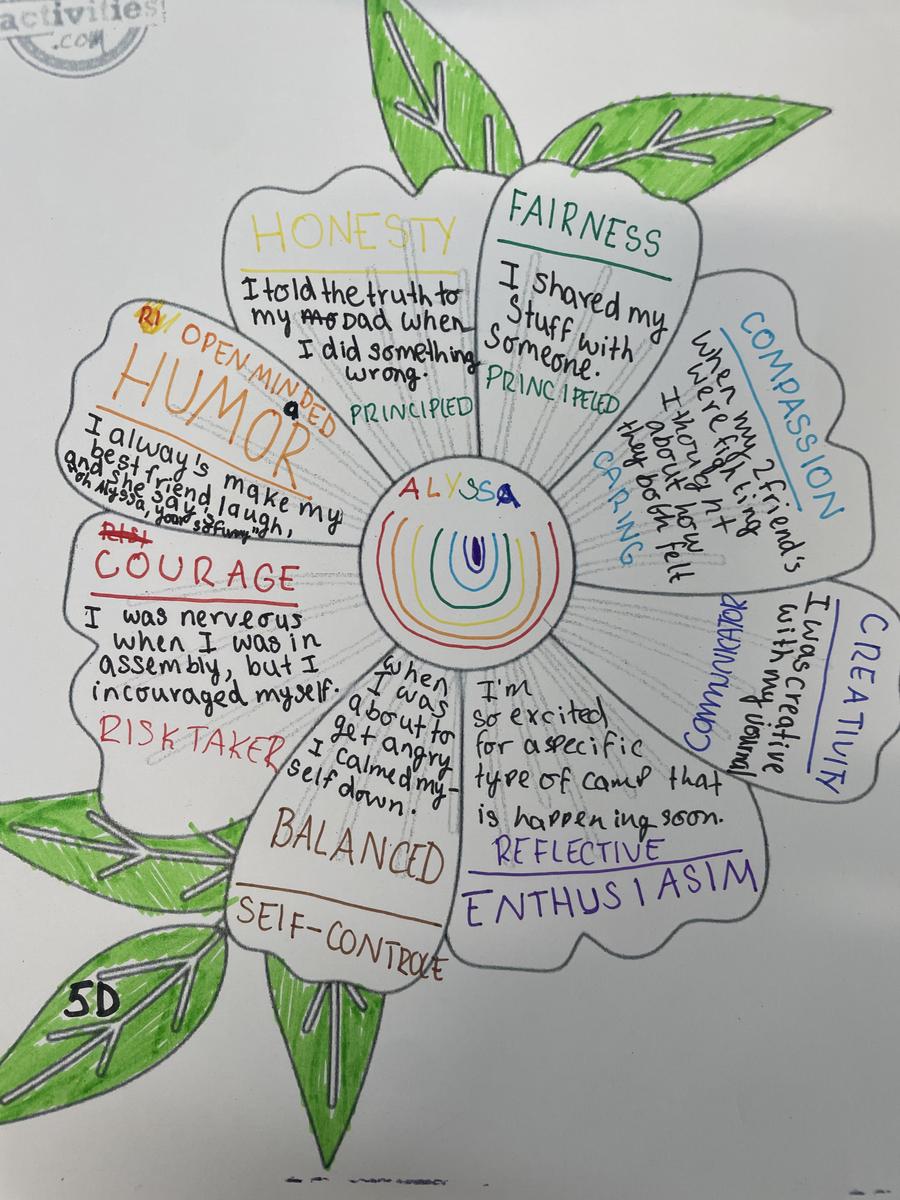 activities!
.com
HONESTY
I told the truth to
my Mo Dad when
I did something
wrong.
PRINCIPLED
FAIRNESS
I shared my
Stuff with
Someone.
PRINCIPELED
COMPASSION
When my 2 friend's
were fighting
I thought
about how
they both felt
CARING
CREATIVITY
I was creative
with my journal
COMMUNICATOR
I'm
so excited
for a specific
type of camp that
is happening soon.
REFLECTIVE
ENTHUSIASIM
When
I was
about to
get angry
I calmed my-
self down.
BALANCED
SELF-CONTROLE
RISI
COURAGE
I was nerveous
when I was in
assembly, but I
incouraged myself.
RISK TAKER
RI OPEN-MINDED
HUMOR
I alway's make my
best friend laugh,
and she say's,
"oh Alyssa, your so funny",
ALYSSA
5D